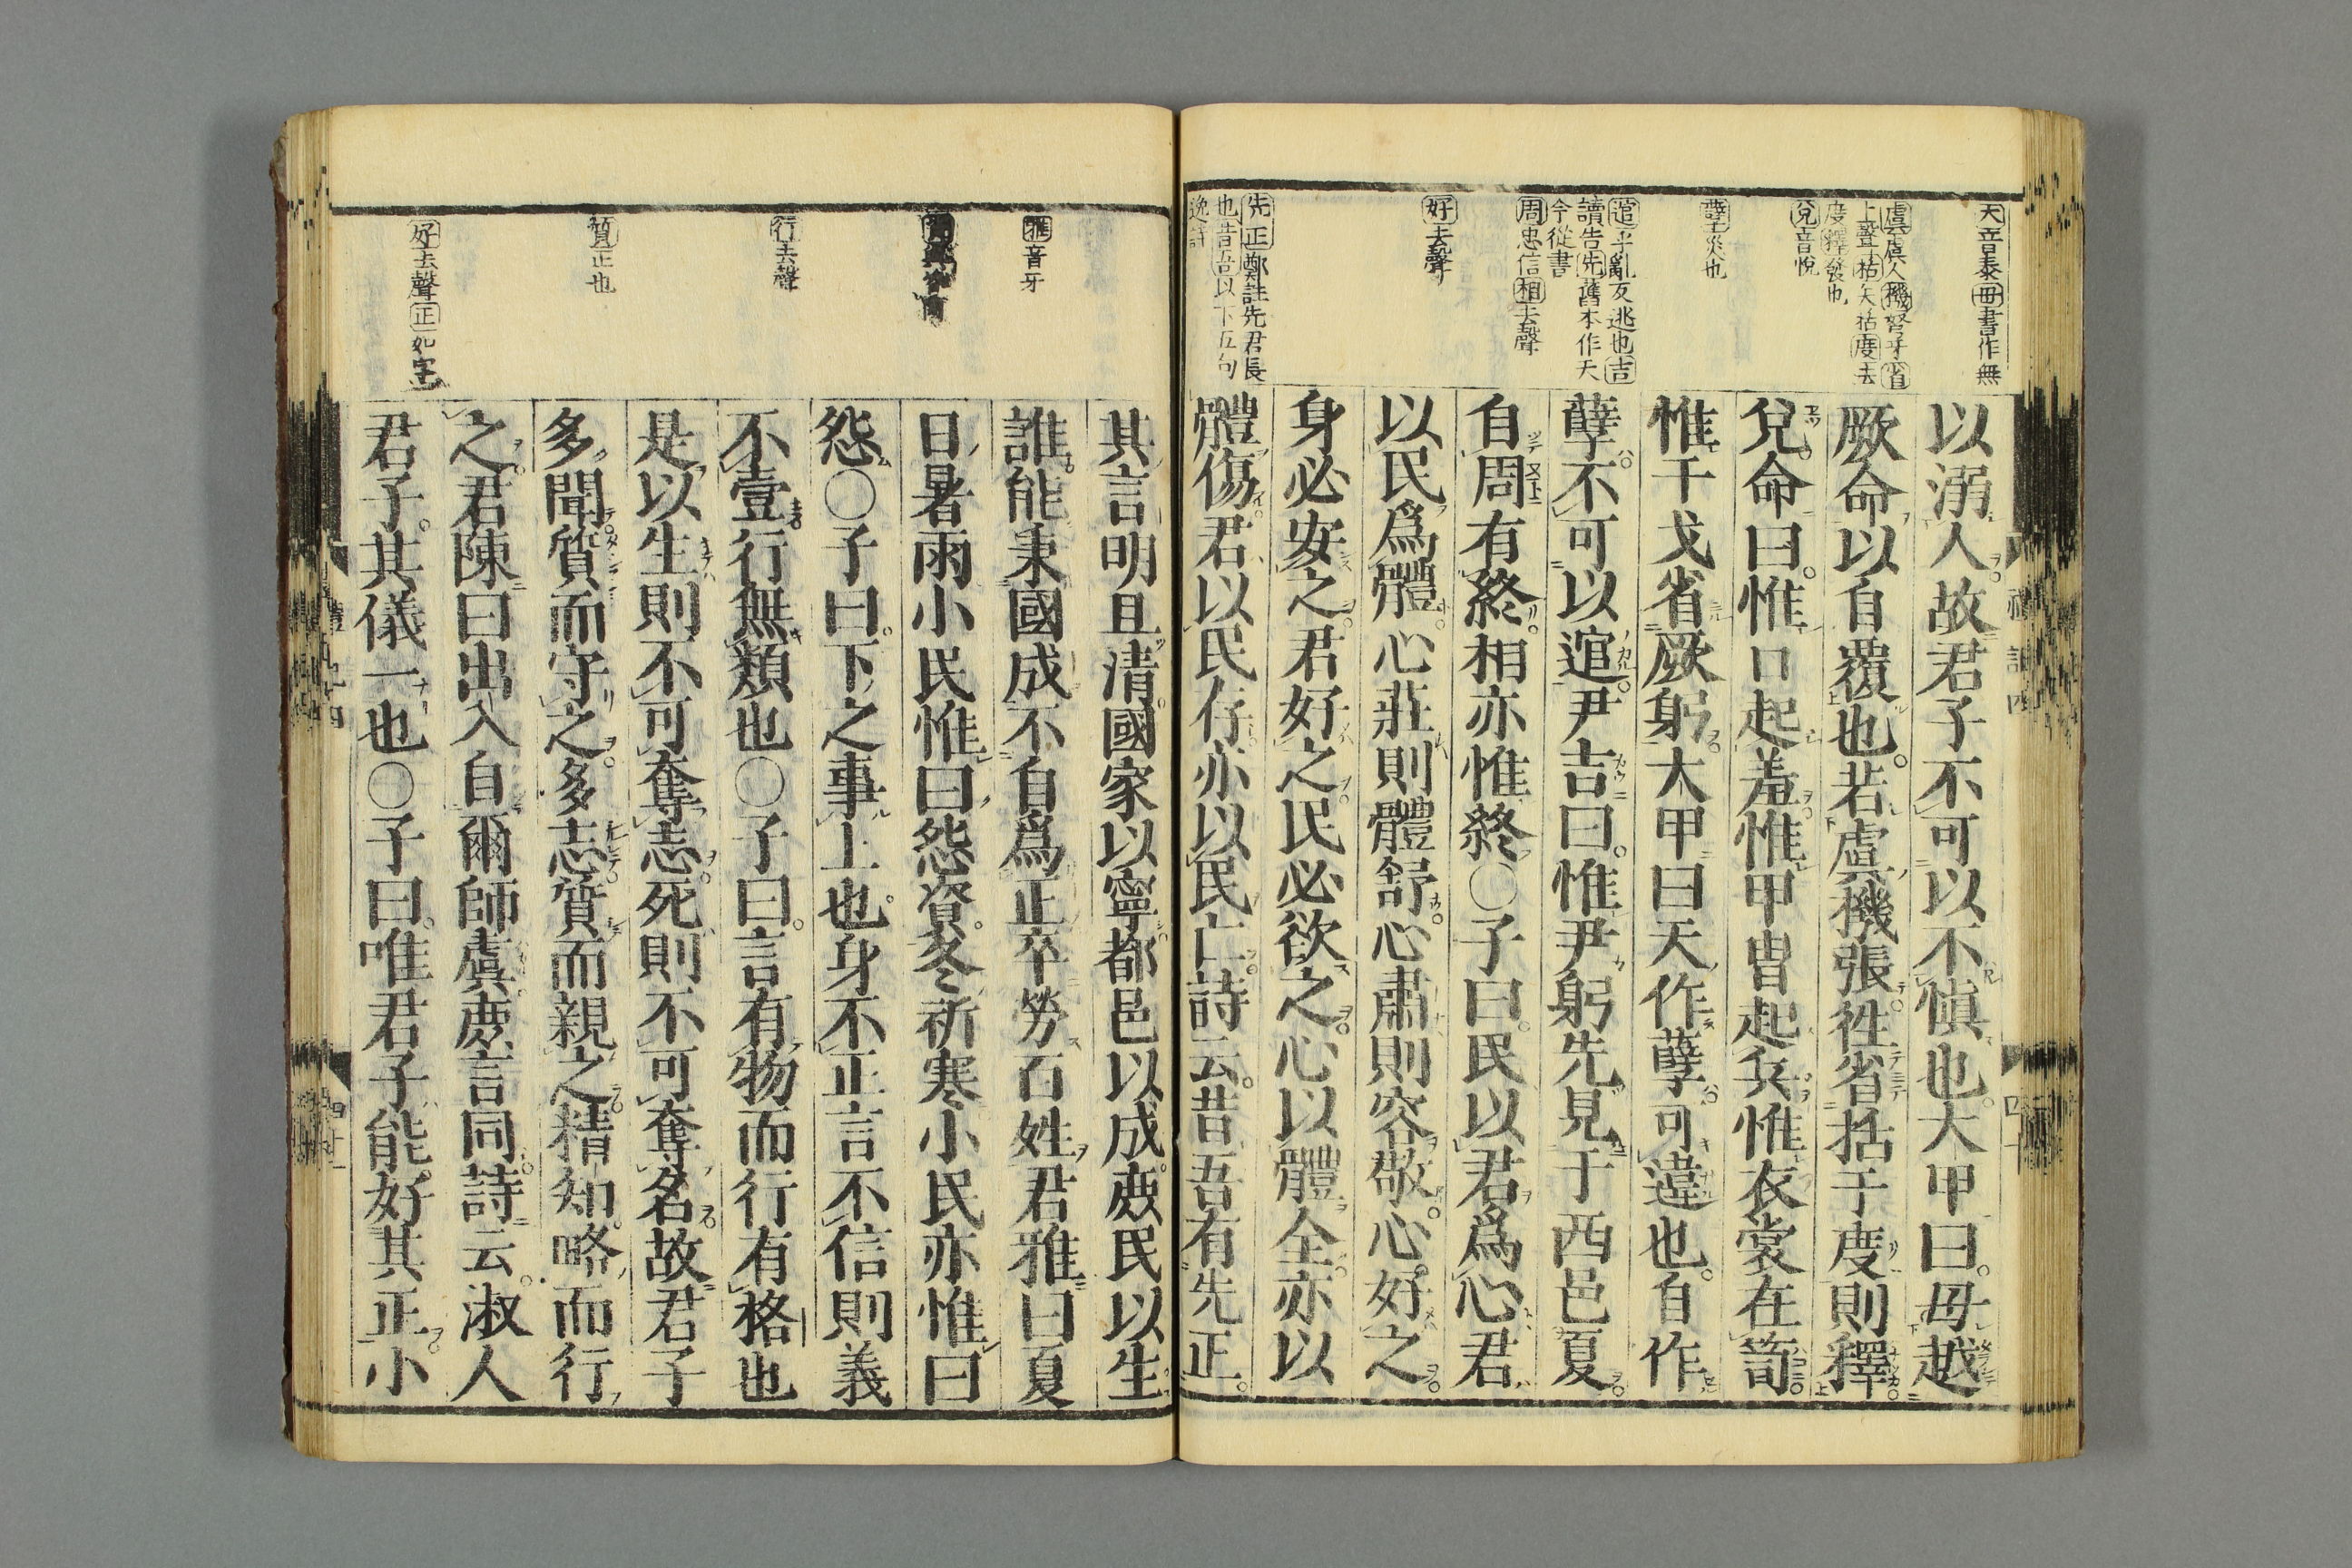 大音泰毋書作無
虞虞人機弩牙省
上聲括矢括度去
度釋發也
兌音悅
孼災也
逭乎亂反逃也吉
讀告先舊本作天
今從書
周忠信相去聲
好去聲
先正鄭註先君長
也昔吾以下五句
逸詩
以溺人故君子不可以不慎也大甲曰毋越
厥命以自覆也若虞機張往省括于度則釋
兌命曰惟口起羞惟甲冑起兵惟衣裳在笥
惟干戈省厥躬大甲曰天作孼可違也自作
孼不可以逭尹吉曰惟尹躬先見于西邑夏
自周有終相亦惟終○子曰民以君爲心君
以民爲體心莊則體舒心肅則容敬心好之
身必安之君好之民必欲之心以體全亦以
體傷君以民存亦以民亡詩云昔吾有先正
雅音牙
行去聲
質正也
好去聲正如字
其言明且清國家以寧都邑以成庶民以生
誰能秉國成不自爲正卒勞百姓君雅曰夏
日暑雨小民惟曰怨資冬祈寒小民亦惟曰
怨○子曰下之事上也身不正言不信則義
不壹行無類也○子曰言有物而行有格也
是以生則不可奪志死則不可奪名故君子
多聞質而守之多志質而親之精知略而行
之君陳曰出入自爾師虞庶言同詩云淑人
君子其儀一也○子曰唯君子能好其正小